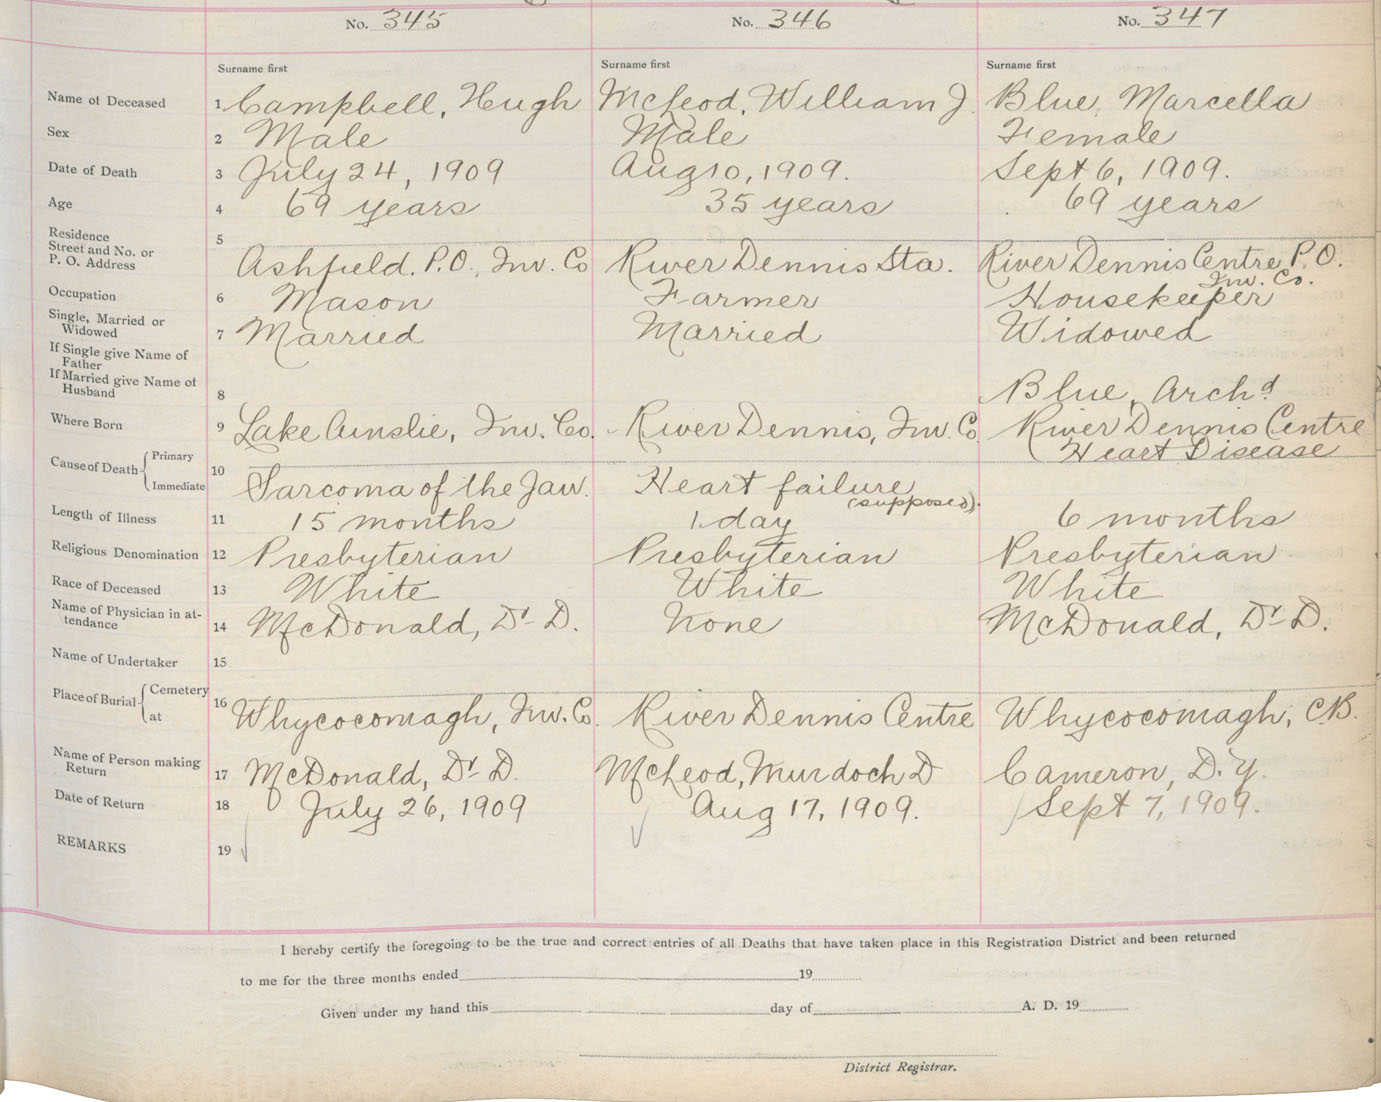 No. 345 No. 346 No. 347
Surname first Surname first Surname first
Name of Deceased 1 Campbell, Hugh McLeod, William J. Blue, Marcella
Sex 2 Male Male Female
Date of Death 3 July 24, 1909 Aug 10, 1909. Sept 6, 1909.
Age 4 69 years 35 years 69 years
Residence 5
Street and No. or
P. O. Address Ashfield. P.O., Inv. Co River Dennis Sta. River Dennis Centre P.O.
Inv. Co.
Occupation 6 Mason Farmer Housekeeper
Single, Married or
Widowed 7 Married Married Widowed
If Single give Name of
Father
If Married give Name of
Husband 8 Blue, Archd
Where Born 9 Lake Ainslie, Inv. Co. River Dennis, Inv. Co River Dennis Centre
Cause of Death { Primary Heart Disease
Immediate 10 Sarcoma of the Jaw. Heart failure
(supposed).
Length of Illness 11 15 months 1 day 6 months
Religious Denomination 12 Presbyterian Presbyterian Presbyterian
Race of Deceased 13 White White White
Name of Physician in at-
tendance 14 McDonald, Dr D. None McDonald, Dr D.
Name of Undertaker 15
Place of Burial { Cemetery
at 16 Whycocomagh, Inv. Co. River Dennis Centre Whycocomagh, C.B.
Name of Person making
Return 17 McDonald, Dr D. McLeod, Murdoch D Cameron, D. Y.
Date of Return 18 July 26, 1909 Aug 17, 1909. Sept 7, 1909.
REMARKS 19
I hereby certify the foregoing to be the true and correct entries of all Deaths that have taken place in this Registration District and been returned
to me for the three months ended 19
Given under my hand this day of A. D. 19
District Registrar.